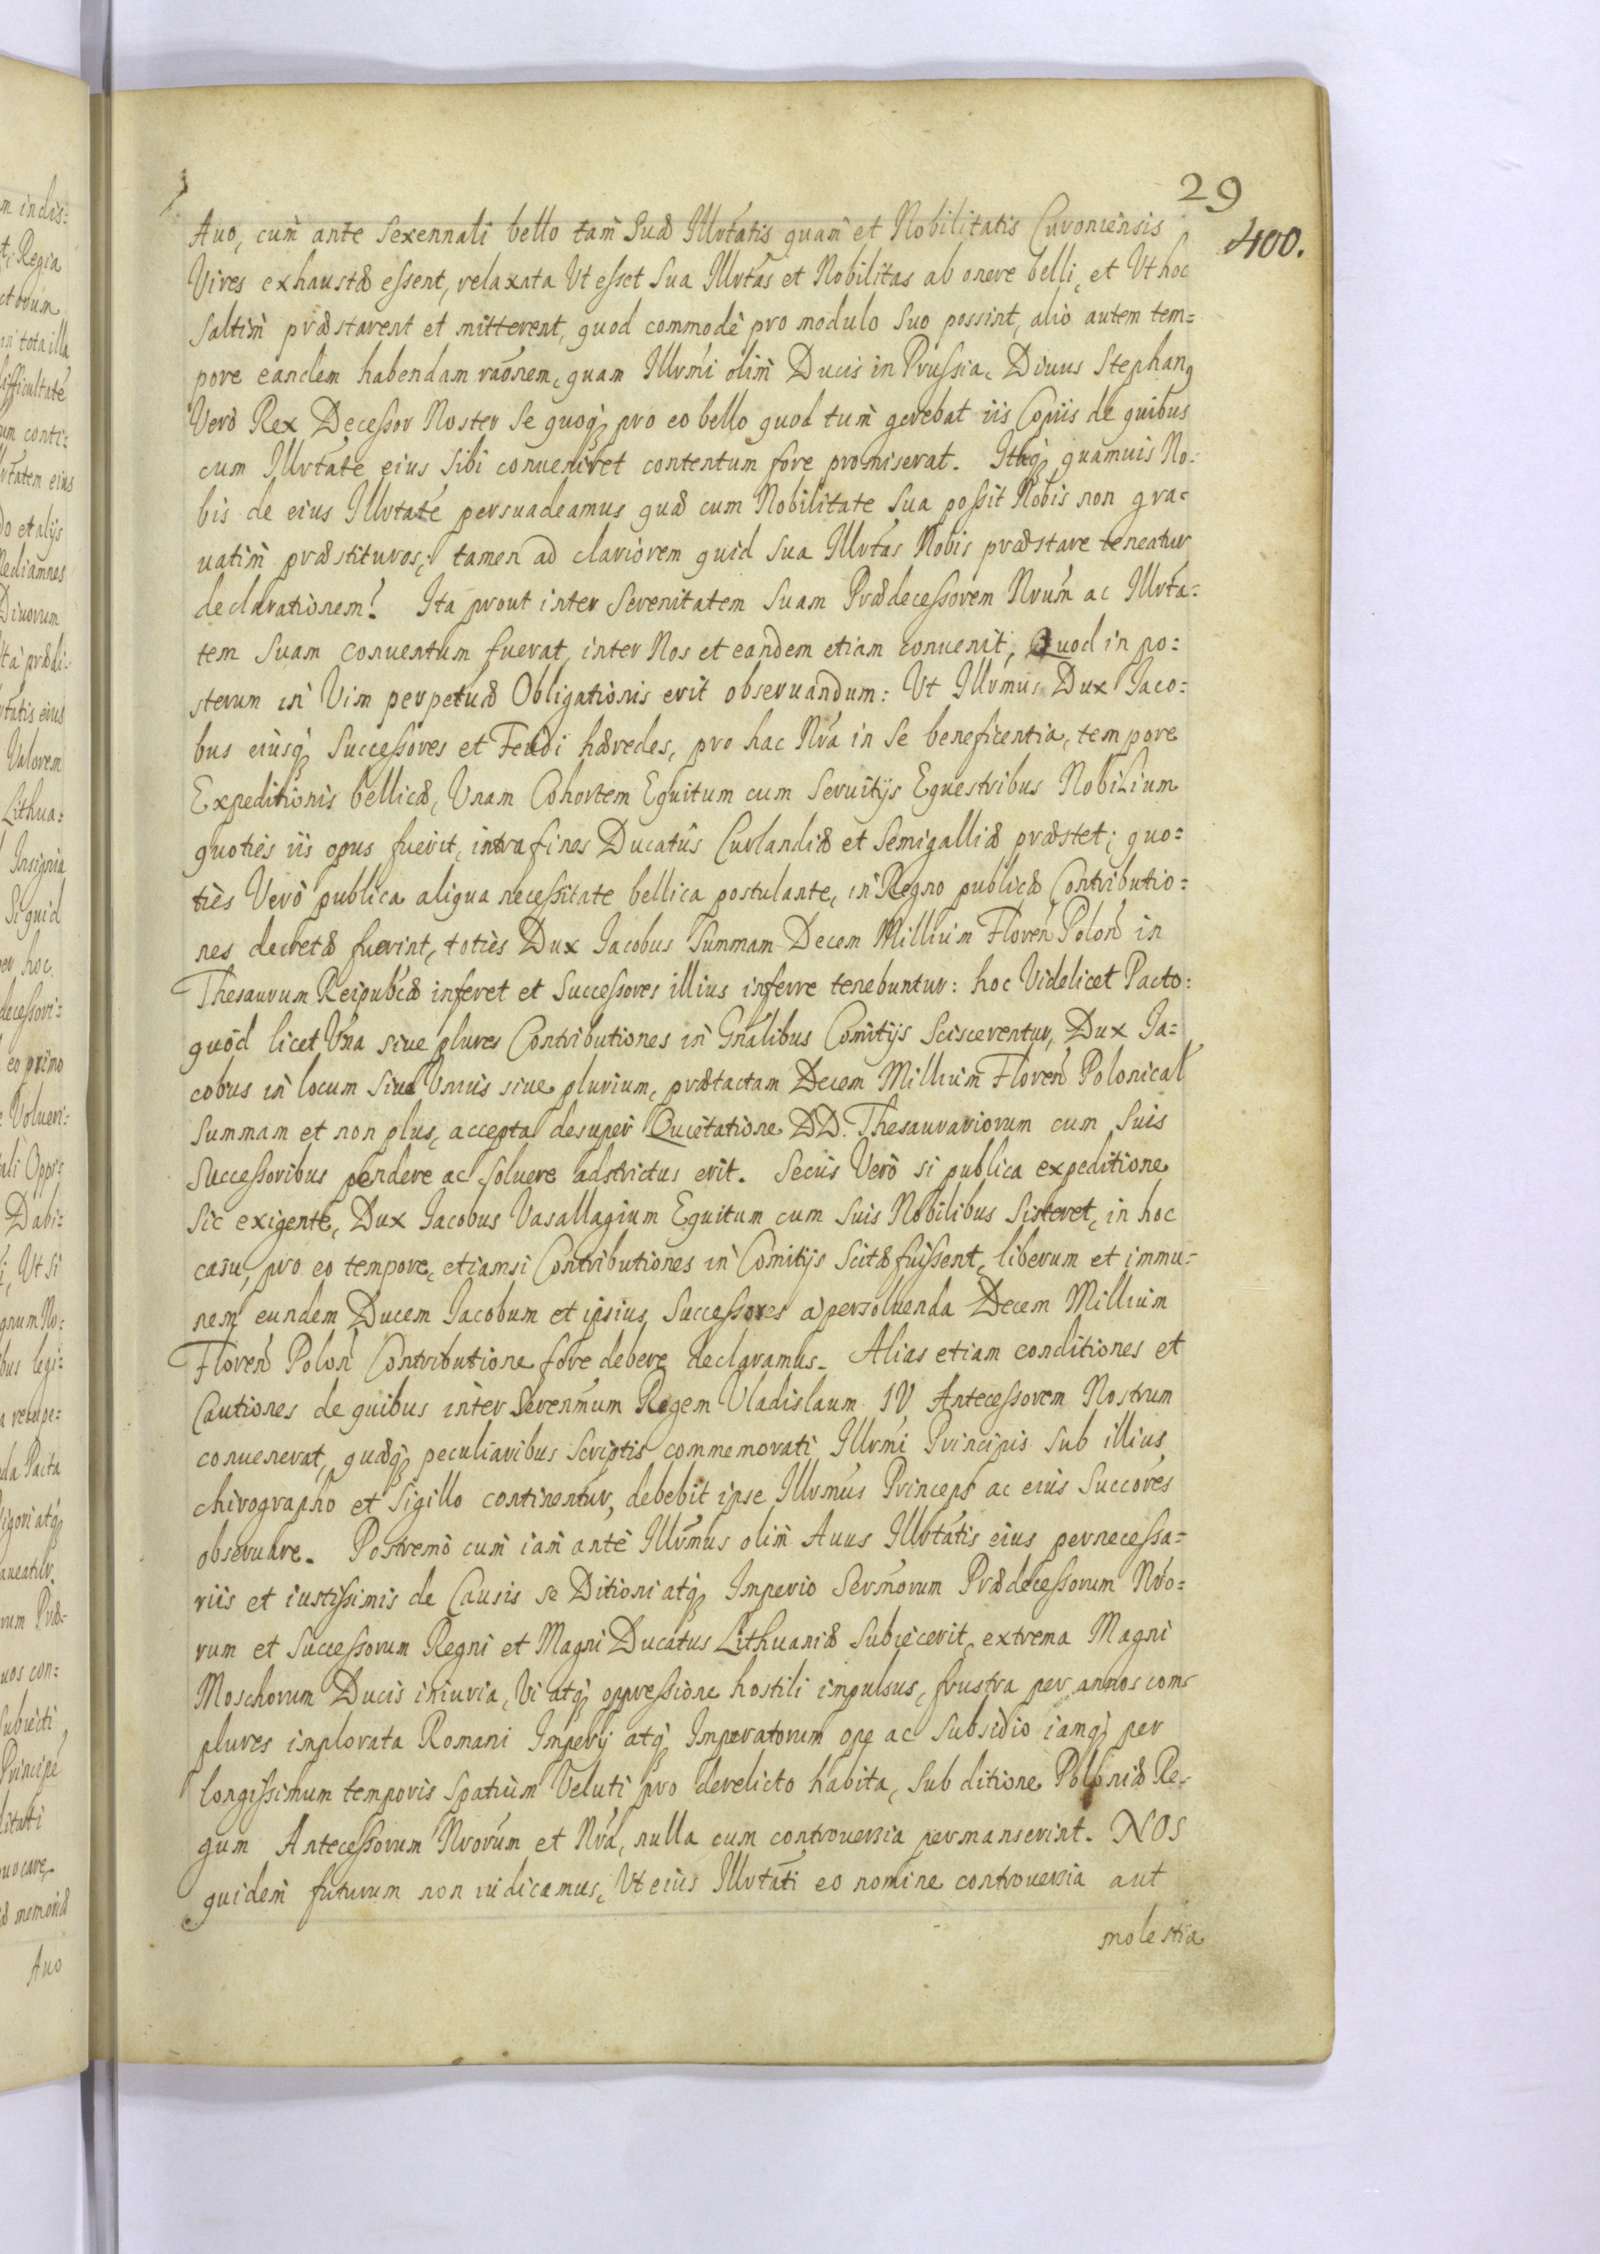 29
400.
Auo, cum̀ ante Sexennali bello tam̀ Suæ Illrtatis quam̀ et Nobilitatis Curoniensis
Vires exhaustæ essent, relaxata Vt esset Sua Illrtas et Nobilitas ab onere belli, et Vt hoc
Saltim̀ præstarent et mitterent, quod commodè pro modulo Suo possint, aliò autem tem=
pore eandem habendam raonem, quam Illrmi olim̀ Ducis in Prussia. Diuus Stephanꝯ
Verò Rex Decessor Noster Se quoqꝫ pro eo bello quod tum̀ gerebat iis Copiis de quibus
cum Illrtate eius Sibi conueniret contentum fore promiserat. Itaqꝫ quamuis No=
bis de eius Illrtate persuadeamus quæ cum Nobilitate Sua possit Nobis non gra=
uatim̀ præstituros, tamen ad clariorem quid Sua Illrtas Nobis præstare teneatur
declarationem! Ita prout inter Serenitatem Suam Prædecessorem Nrum̃ ac Illrta=
tem Suam conuentum fuerat, inter Nos et eandem etiam conuenit, Quod in po=
sterum in Vim perpetuæ Obligationis erit obseruandum: Vt Illrmus Dux Jaco=
bus eiusqꝫ Successores et Feudi hæredes, pro hac Nra in Se beneficentia, tempore
Expeditionis bellicæ, Vnam Cohortem Equitum cum Seruitijs Equestribus Nobilium
quoties iis opus fuerit, intra fines Ducatûs Curlandiæ et Semigalliæ præstet; quo=
tiès Verò publica aliqua necessitate bellica postulante, in Regno publicæ Contributio=
nes decretæ fuerint, totiès Dux Jacobus Summam Decem Millium Floren̄ Polon̄ in
Thesaurum Reipubcæ inferet et Successores illius inferre tenebuntur: hoc Videlicet Pacto:
quòd licet Vna siue plures Contributiones in Gnalibus Comitijs Sciscerentur, Dux Ja=
cobus in locum Siue Vnius siue plurium, prætactam Decem Millium Floren̄ Polonical̃
Summam et non plus, accepta desuper Quietatione DD. Thesaurariorum cum Suis
Successoribus pendere ac Soluere adstrictus erit. Secùs Verò si publica expeditione
Sic exigente, Dux Jacobus Vasallagium Equitum cum Suis Nobilibus Sisteret, in hoc
casu, pro eo tempore, etiamsi Contributiones in Comitijs Scitæ fuissent, liberum et immu=
nem eundem Ducem Jacobum et ipsius Successores à persoluenda Decem Millium
Floren̄ Polon̄ Contributione fore debere declaramus. Alias etiam conditiones et
Cautiones de quibus inter Serenmum Regem Vladislaum IV Antecessorem Nostrum
conuenerat, quæqꝫ peculiaribus Scriptis commemorati Illrmi Principis Sub illius
chirographo et Sigillo continentur, debebit ipse Illrmus Princeps ac eius Succores
obseruare. Postremò cum iam antè Illrmus olim̀ Auus Illrtatis eius pernecessa=
riis et iustissimis de Causis se Ditioni atqꝫ Imperio Sermorum Prædecessorum Nro=
rum et Successorum Regni et Magni Ducatus Lithuaniæ Subiecerit, extrema Magni
Moschorum Ducis iniuria, Vi atqꝫ oppressione hostili impulsus, frustra per annos com=
plures implorata Romani Imperij atqꝫ Imperatorum ope ac Subsidio iamqꝫ per
longissimum temporis Spatium Veluti pro derelicto habita, Sub ditione Poloniæ Re=
gum Antecessorum Nrorum et Nra, nulla cum controuersia permanserint. NOS
quidem futurum non iudicamus, Vt eius Illrtati eo nomine controuersia aut
molestia